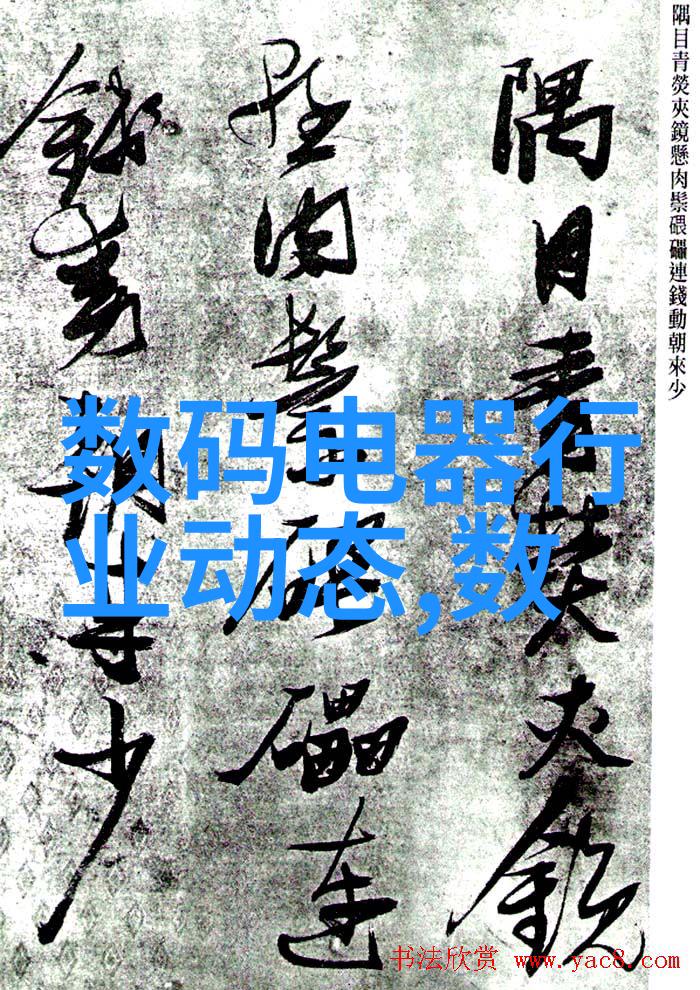 隅目青熒夾鏡懸肉鬃碨礧連錢動朝來少
隅目青熒夾鏡
懸肉鬃碨礧連
錢動朝來少
数码电器行
业动态,数
书法欣赏 www.yac8.com